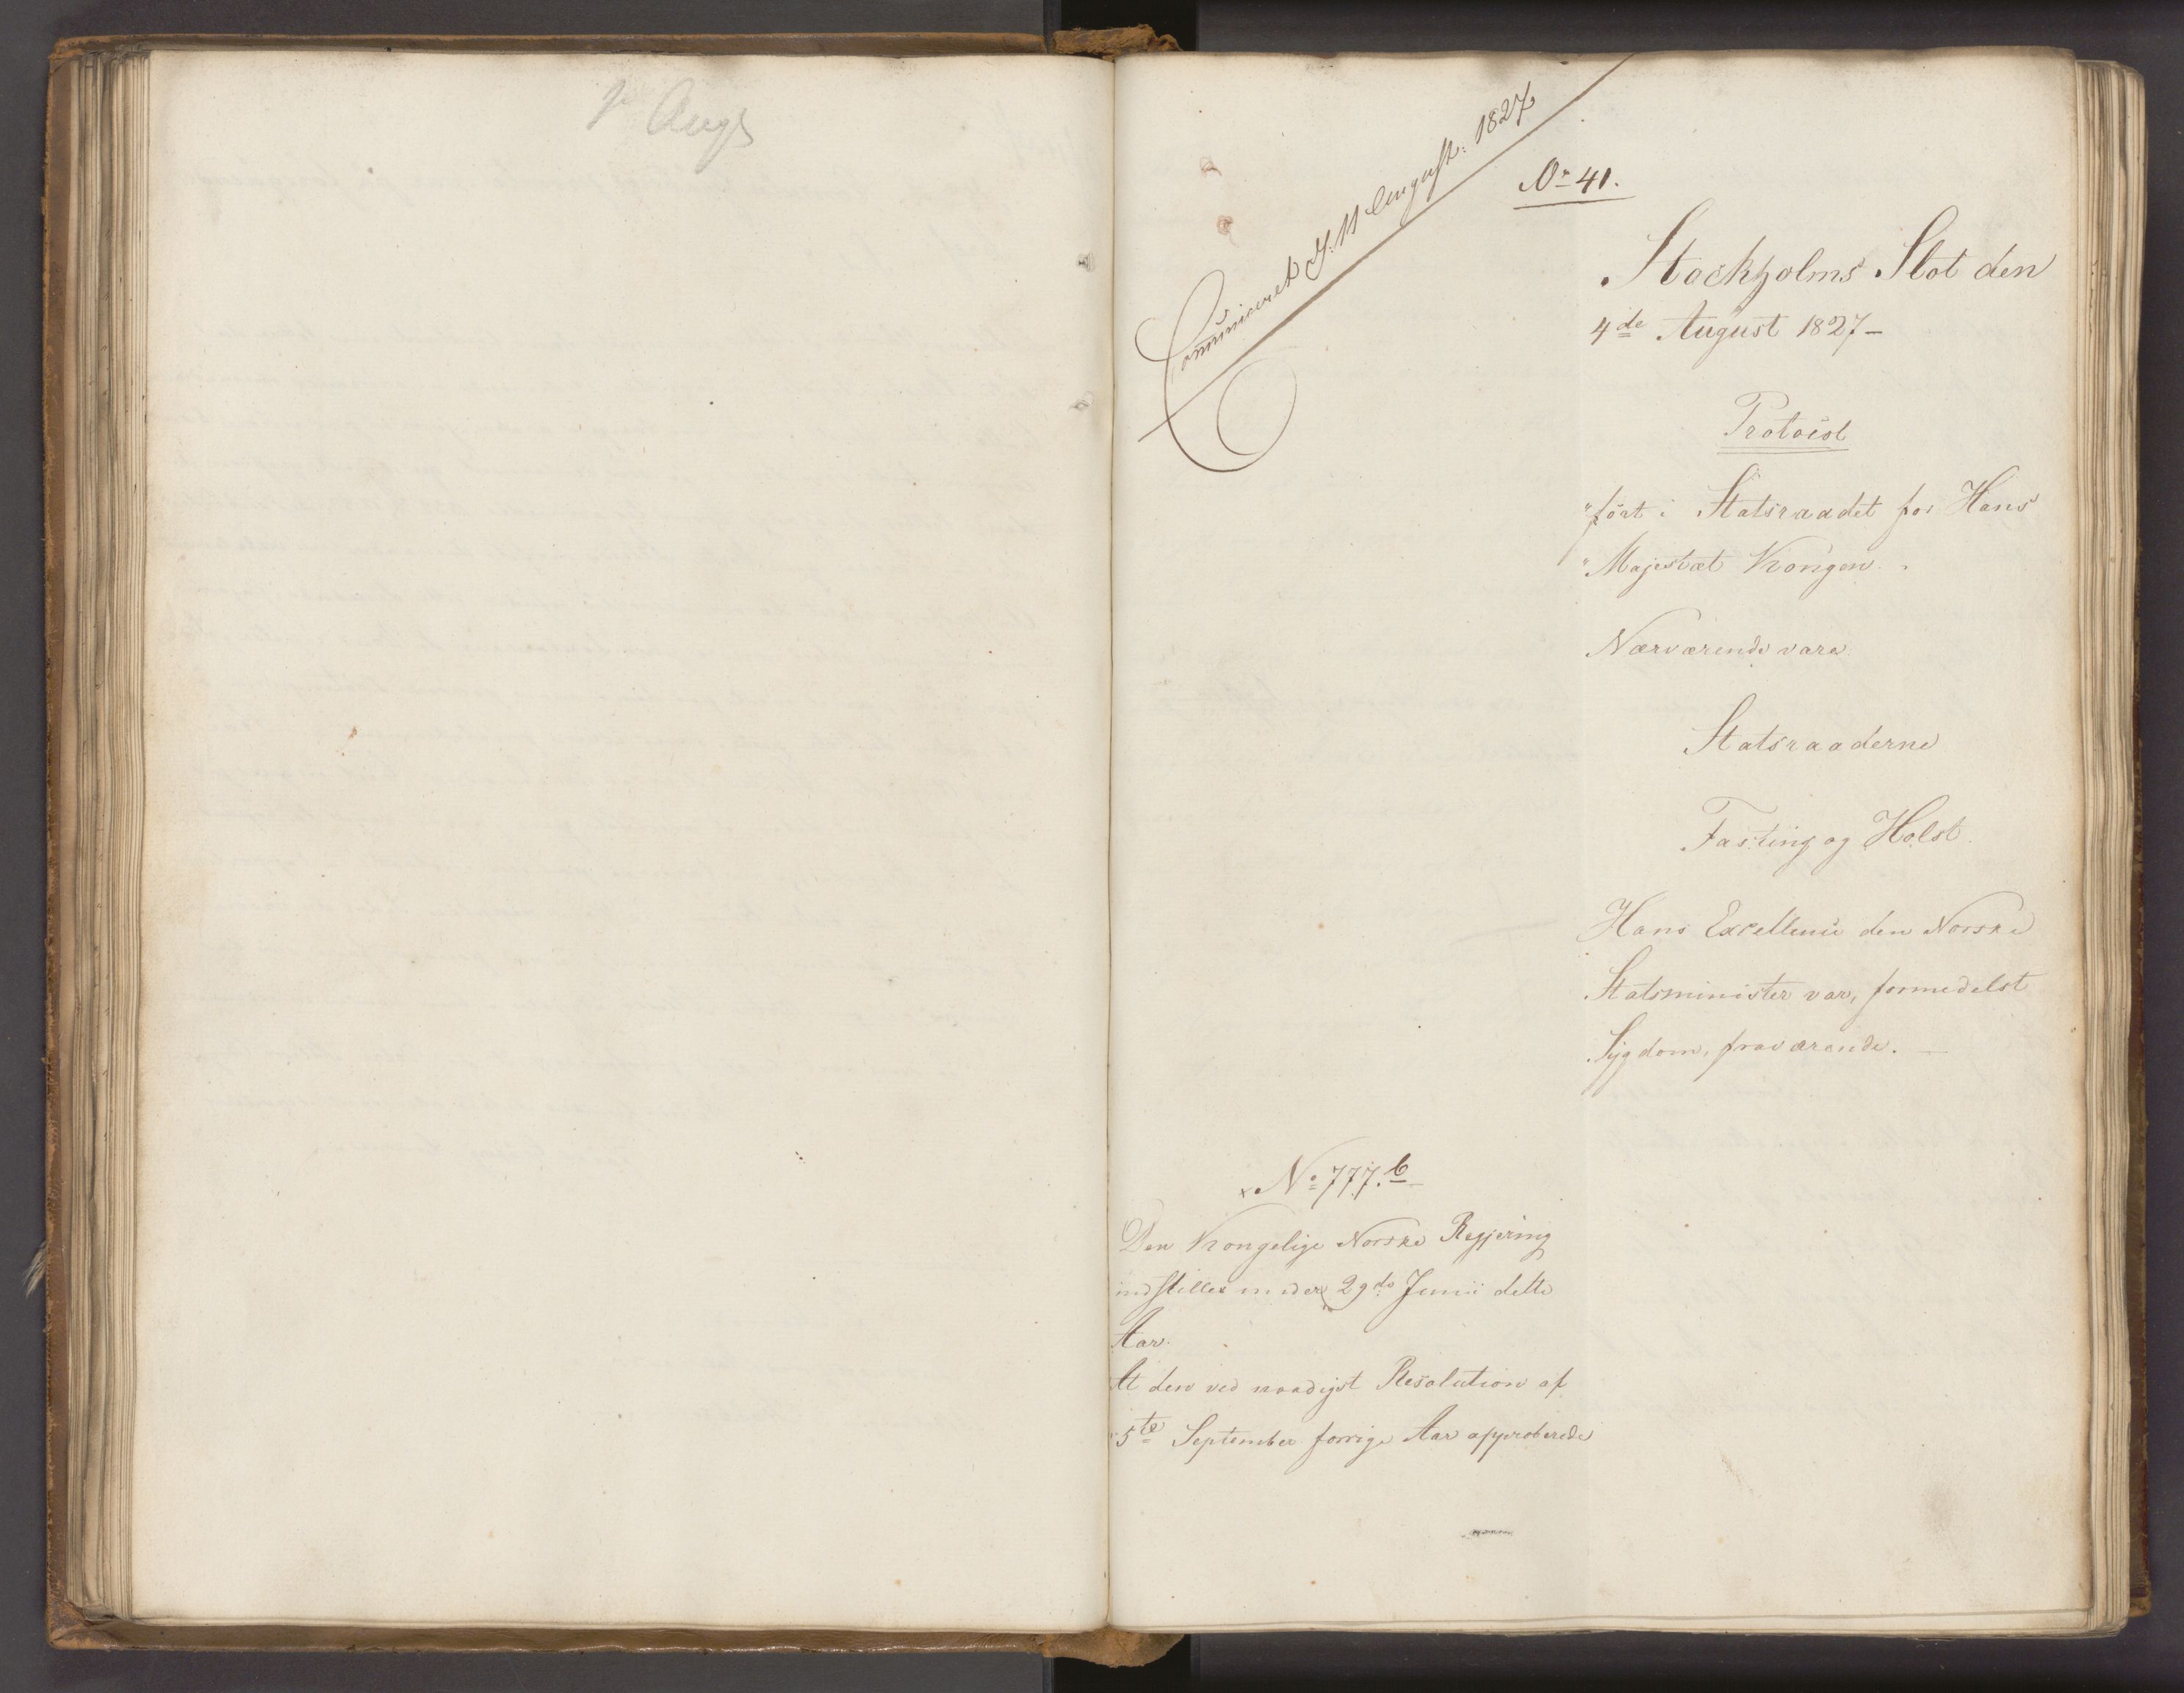 Augs
Communiceret d. 11 August: 1827
No 41.
Stockholms Slot den
4de August 1827-
Protocol
ført i Statsraadet for Hans
Majestæt Kongen.
Nærværende vare
Statsraaderne
Fasting og Holst.
Hans Excellence den Norske
Statsminister var, formedelst
Sygdom, fraværende. —
× No 777.b
Den Kongelige Norske Regjering
indstiller under 29de Junii dette
Aar.
At den ved naadigst Resolution af
5te September forrige Aar approberede